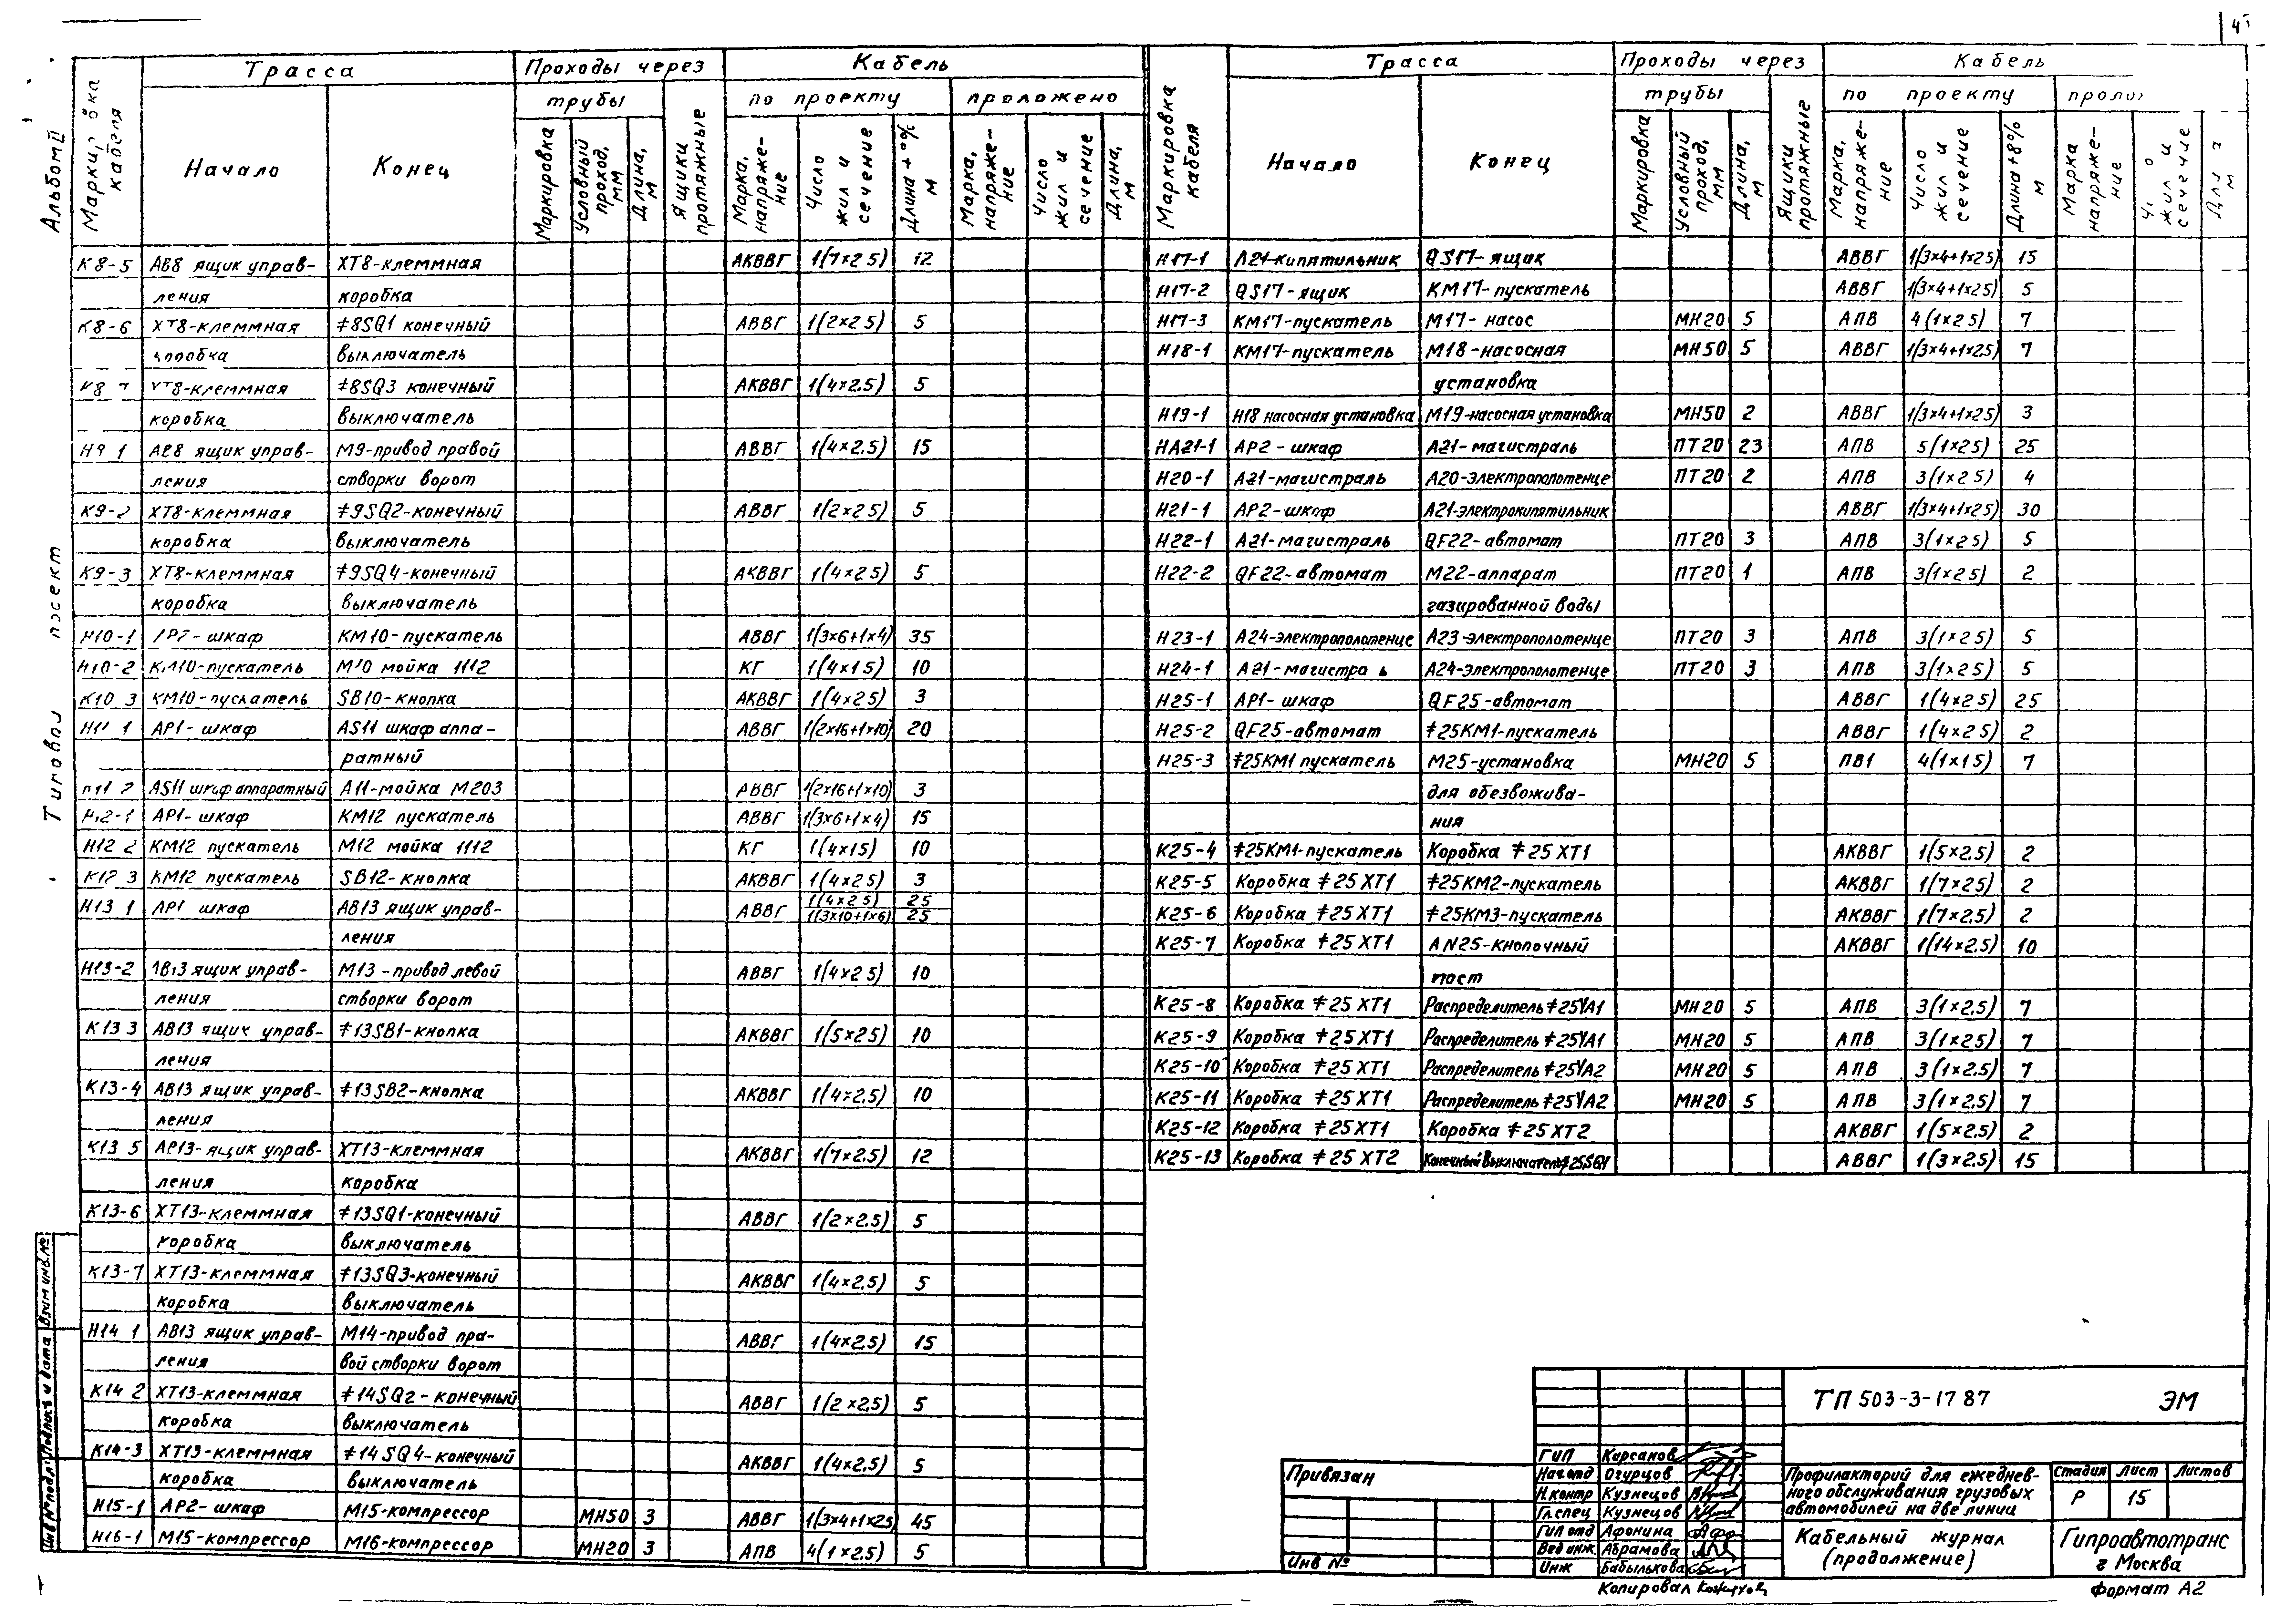 Альбом II
Типовой проект
Трасса | Проходы через | Кабель
трубы | Ящики протяжные | по проекту | проложено
Начало | Конец | Маркировка | Условный проход, мм | Длина, м | Марка, напряжение | Число жил и сечение | Длина +%, м | Марка, напряжение | Число жил и сечение | Длина, м
К8-5 | АВ8 ящик управ- | ХТ8-клеммная | АКВВГ | 1(7×2 5) | 12
ления | коробка
К8-6 | ХТ8-клеммная | ≠8SQ1 конечный | АВВГ | 1(2×2 5) | 5
коробка | выключатель
К8 7 | ХТ8-клеммная | ≠8SQ3 конечный | АКВВГ | 1(4×2.5) | 5
коробка | выключатель
Н9 1 | А28 ящик управ- | М9-привод правой | АВВГ | 1(4×2.5) | 15
ления | створки ворот
К9-2 | ХТ8-клеммная | ≠9SQ2-конечный | АВВГ | 1(2×2 5) | 5
коробка | выключатель
К9-3 | ХТ8-клеммная | ≠9SQ4-конечный | АКВВГ | 1(4×2 5) | 5
коробка | выключатель
Н10-1 | АР2- шкаф | КМ10-пускатель | АВВГ | 1(3×6+1×4) | 35
Н10-2 | КМ10-пускатель | М10 мойка 1112 | КГ | 1(4×1 5) | 10
К10 3 | КМ10-пускатель | SB10-кнопка | АКВВГ | 1(4×2 5) | 3
Н11 1 | АР1- шкаф | AS11 шкаф аппа-| АВВГ | 1(2×16+1×10) | 20
ратный
Н11 2 | AS11 шкаф аппаратный | А11-мойка М203 | АВВГ | 1(2×16+1×10) | 3
Н12-1 | АР1- шкаф | КМ12 пускатель | АВВГ | 1(3×6+1×4) | 15
Н12 2 | КМ12 пускатель | М12 мойка 1112 | КГ | 1(4×1 5) | 10
К12 3 | КМ12 пускатель | SB12-кнопка | АКВВГ | 1(4×2 5) | 3
Н13 1 | АР1 шкаф | АВ13 ящик управ- | АВВГ | 1(4×2 5) | 25
1(3×10+1×6) | 25
ления
Н13-2 | АВ13 ящик управ- | М13-привод левой | АВВГ | 1(4×2 5) | 10
ления | створки ворот
К13 3 | АВ13 ящик управ- | ≠13SB1-кнопка | АКВВГ | 1(5×2 5) | 10
ления
К13-4 | АВ13 ящик управ- | ≠13SB2-кнопка | АКВВГ | 1(4×2.5) | 10
ления
К13 5 | АР13-ящик управ- | ХТ13-клеммная | АКВВГ | 1(7×2.5) | 12
ления | коробка
К13-6 | ХТ13-клеммная | ≠13SQ1-конечный | АВВГ | 1(2×2.5) | 5
коробка | выключатель
К13-7 | ХТ13-клеммная | ≠13SQ3-конечный | АКВВГ | 1(4×2.5) | 5
коробка | выключатель
Н14 1 | АВ13 ящик управ- | М14-привод пра- | АВВГ | 1(4×2.5) | 15
ления | вой створки ворот
К14 2 | ХТ13-клеммная | ≠14SQ2-конечный | АВВГ | 1(2×2.5) | 5
коробка | выключатель
К14-3 | ХТ13-клеммная | ≠14SQ4-конечный | АКВВГ | 1(4×2.5) | 5
коробка | выключатель
Н15-1 | АР2- шкаф | М15-компрессор | МН50 | 3 | АВВГ | 1(3×4+1×2.5 | 45
Н16-1 | М15-компрессор | М16-компрессор | МН20 | 3 | АПВ | 4(1×2.5) | 5
Маркировка кабеля | Трасса | Проходы через | Кабель
трубы | Ящики протяжные | по проекту
Начало | Конец | Маркировка | Условный проход, мм | Длина, м | Марка, напряжение | Число жил и сечение | Длина +8% м | Марка напряжение
Н17-1 | А21-кипятильник | QS17-ящик | АВВГ | 1(3×4+1×2 5) | 15
Н17-2 | QS17-ящик | КМ17-пускатель | АВВГ | 1(3×4+1×2 5) | 5
Н17-3 | КМ17-пускатель | М17- насос | МН20 | 5 | АПВ | 4(1×2 5) | 7
Н18-1 | КМ17-пускатель | М18-насосная | МН50 | 5 | АВВГ | 1(3×4+1×2.5) | 7
установка
Н19-1 | Н18 насосная установка | М19-насосная установка | МН50 | 2 | АВВГ | 1(3×4+1×2 5) | 3
НА21-1 | АР2 - шкаф | А21-магистраль | ПТ20 | 23 | АПВ | 5(1×2 5) | 25
Н20-1 | А21-магистраль | А20-электрополотенце | ПТ20 | 2 | АПВ | 3(1×2 5) | 4
Н21-1 | АР2-шкаф | А21-электрокипятильник | АВВГ | 1(3×4+1×2 5) | 30
Н22-1 | А21-магистраль | QF22-автомат | ПТ20 | 3 | АПВ | 3(1×2 5) | 5
Н22-2 | QF22-автомат | М22-аппарат | ПТ20 | 1 | АПВ | 3(1×2 5) | 2
газированной воды
Н23-1 | А24-электрополотенце | А23-электрополотенце | ПТ20 | 3 | АПВ | 3(1×2 5) | 5
Н24-1 | А21-магистра ь | А24-электрополотенце | ПТ20 | 3 | АПВ | 3(1×2 5) | 5
Н25-1 | АР1- шкаф | QF25-автомат | АВВГ | 1(4×2 5) | 25
Н25-2 | QF25-автомат | ≠25КМ1-пускатель | АВВГ | 1(4×2 5) | 2
Н25-3 | ≠25КМ1 пускатель | М25-установка | МН20 | 5 | ПВ1 | 4(1×1 5) | 7
для обезвожива-
ния
К25-4 | ≠25КМ1-пускатель | Коробка ≠25 ХТ1 | АКВВГ | 1(5×2.5) | 2
К25-5 | Коробка ≠25 ХТ1 | ≠25КМ2-пускатель | АКВВГ | 1(7×2 5) | 2
К25-6 | Коробка ≠25 ХТ1 | ≠25КМ3-пускатель | АКВВГ | 1(7×2.5) | 2
К25-7 | Коробка ≠25 ХТ1 | AN25-кнопочный | АКВВГ | 1(14×2.5) | 10
пост
К25-8 | Коробка ≠25 ХТ1 | Распределитель ≠25YA1 | МН20 | 5 | АПВ | 3(1×2.5) | 7
К25-9 | Коробка ≠25 ХТ1 | Распределитель ≠25YA1 | МН20 | 5 | АПВ | 3(1×2 5) | 7
К25-10 | Коробка ≠25 ХТ1 | Распределитель ≠25YA2 | МН20 | 5 | АПВ | 3(1×2.5) | 7
К25-11 | Коробка ≠25ХТ1 | Распределитель ≠25YA2 | МН20 | 5 | АПВ | 3(1×2.5) | 7
К25-12 | Коробка ≠25ХТ1 | Коробка ≠25ХТ2 | АКВВГ | 1(5×2.5) | 2
К25-13 | Коробка ≠25 ХТ2 | Конечный выключатель ≠25SQ1 | АВВГ | 1(3×2.5) | 15
ТП 503-3-17 87 | ЭМ
Привязан
Инв №
ГИП | Кирсанов
Нач.отд | Огурцов
Н.контр | Кузнецов
Гл.спец | Кузнецов
Гип отд | Афонина
Вед инж | Абрамова
Инж | Бабылькова
Профилакторий для ежеднев-
ного обслуживания грузовых
автомобилей на две линии
Стадия | Лист | Листов
Р | 15
Кабельный журнал
(продолжение)
Гипроавтотранс
г Москва
Копировал
Формат А2
Инв № подл | Подпись и дата | Взам инв. №